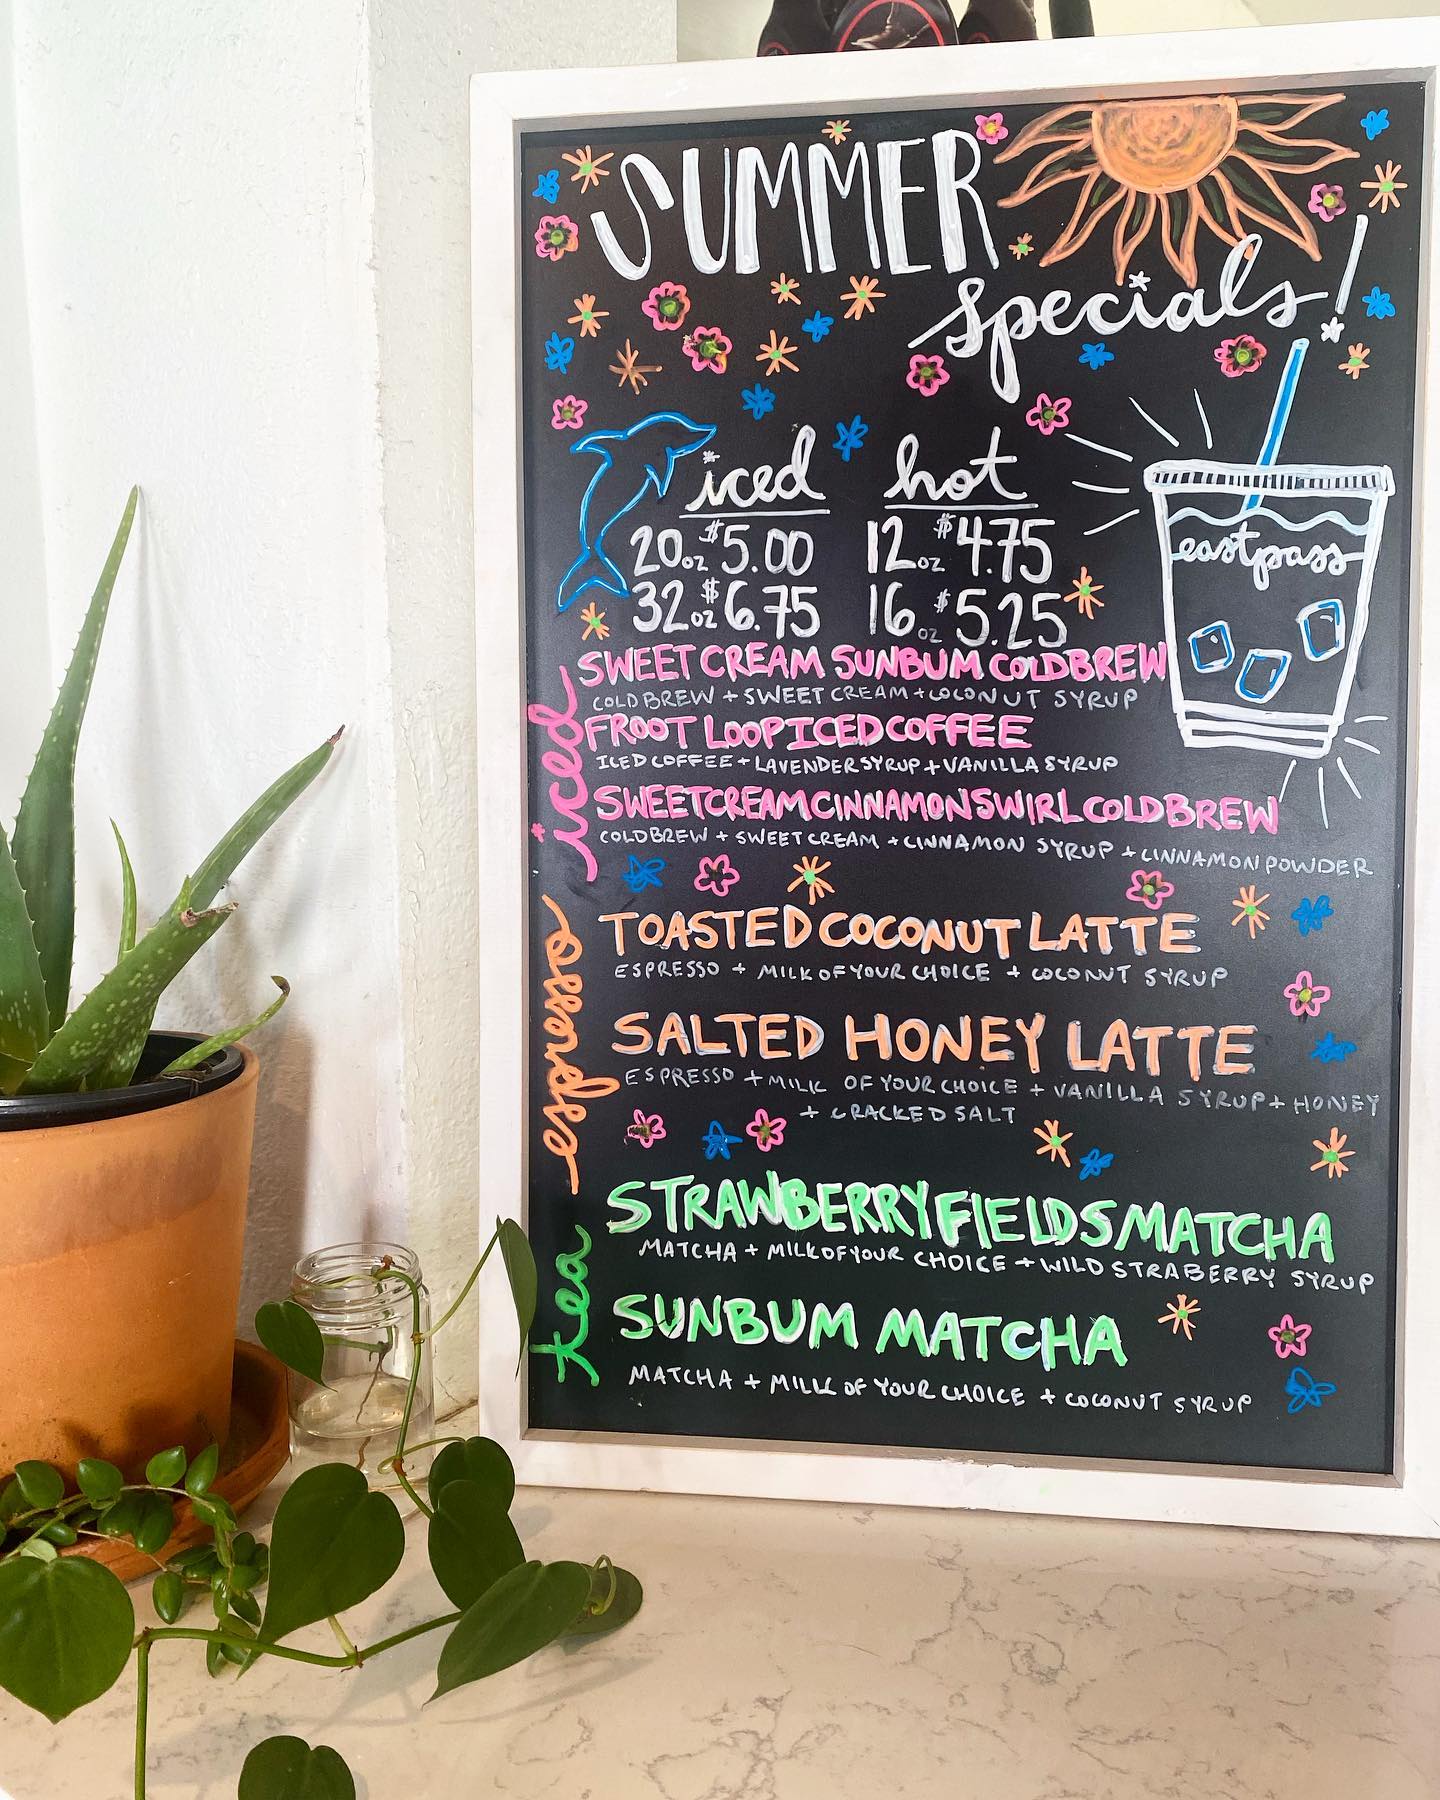 SUMMER
specials!
iced hot
20oz $5.00 12oz $4.75
32oz $6.75 16oz $5.25
eastpass
iced
SWEET CREAM SUNBUM COLDBREW
COLD BREW + SWEET CREAM + COCONUT SYRUP
FROOT LOOP ICED COFFEE
ICED COFFEE + LAVENDER SYRUP + VANILLA SYRUP
SWEET CREAM CINNAMON SWIRL COLD BREW
COLD BREW + SWEET CREAM + CINNAMON SYRUP + CINNAMON POWDER
espresso
TOASTED COCONUT LATTE
ESPRESSO + MILK OF YOUR CHOICE + COCONUT SYRUP
SALTED HONEY LATTE
ESPRESSO + MILK OF YOUR CHOICE + VANILLA SYRUP + HONEY
+ CRACKED SALT
tea
STRAWBERRY FIELDS MATCHA
MATCHA + MILK OF YOUR CHOICE + WILD STRABERRY SYRUP
SUNBUM MATCHA
MATCHA + MILK OF YOUR CHOICE + COCONUT SYRUP